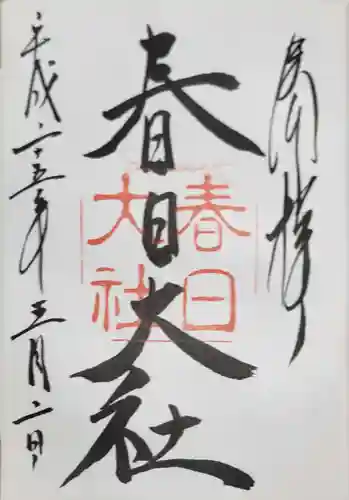 奉拝
春日大社
春日大社
平成二十五年三月二日